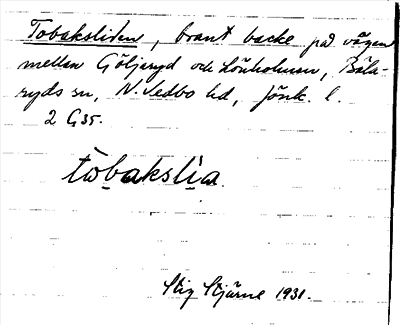 Tobaksliden, brant backe på vägen
mellan Göljaryd och Lönholmen, Bäla-
ryds sn, N. Vedbo hd, Jönk. l.
2 G35.
tobakslia
Stig Stjärne 1931.